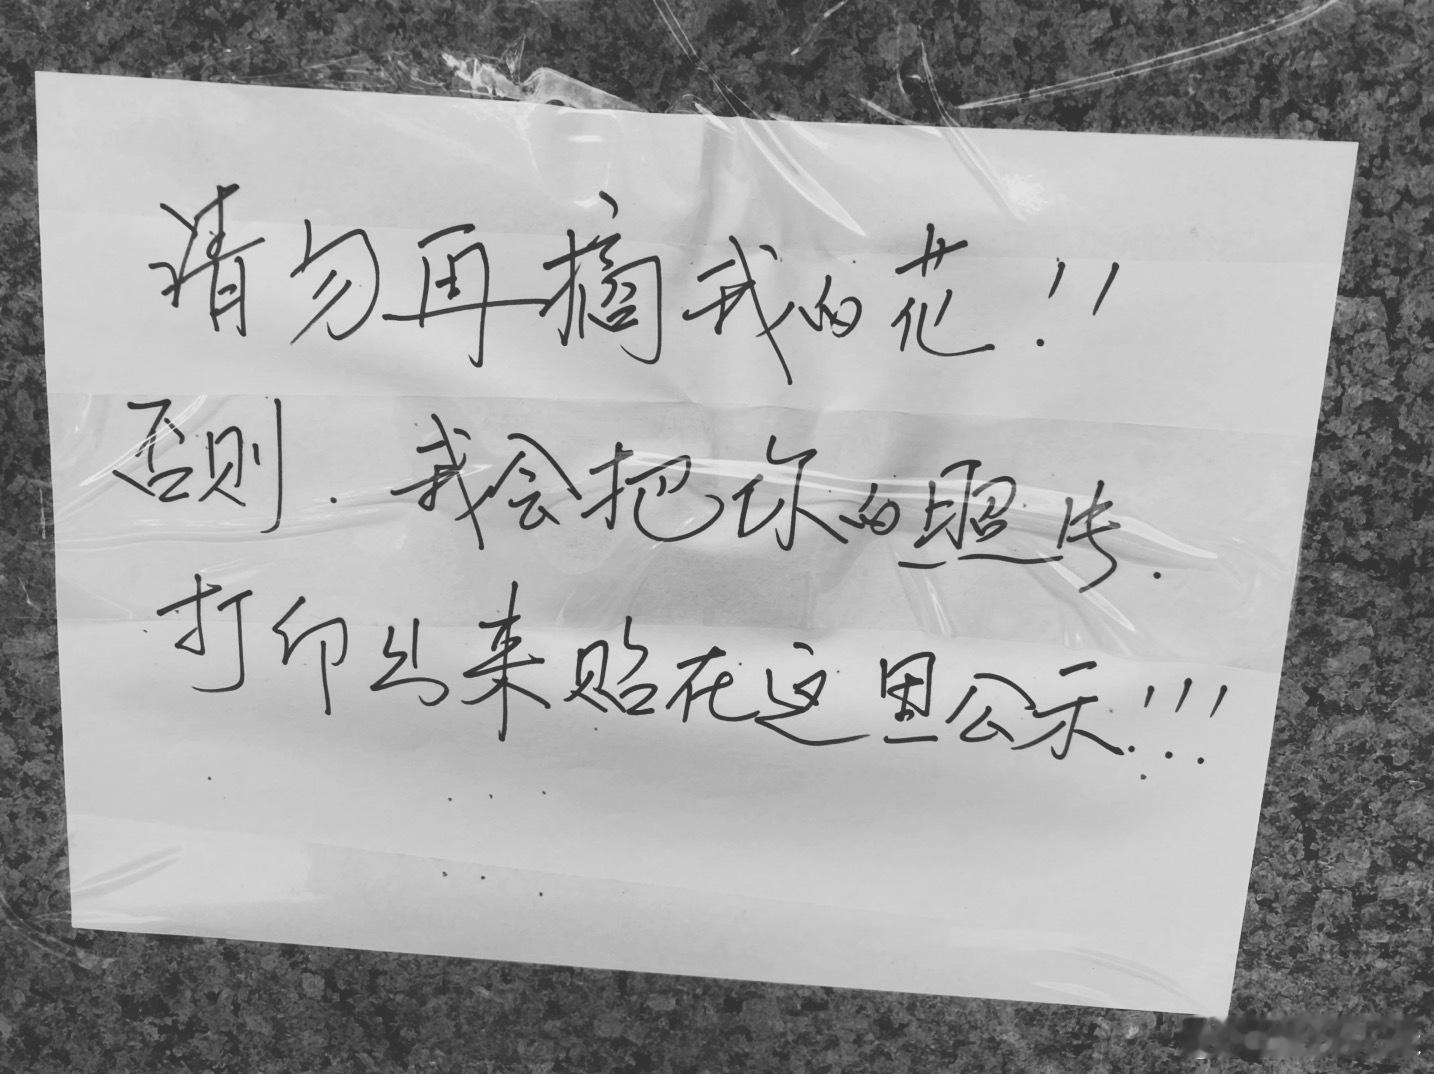 请勿再摘我的花!!
否则.我会把你的照片.
打印出来贴在这里公示!!!